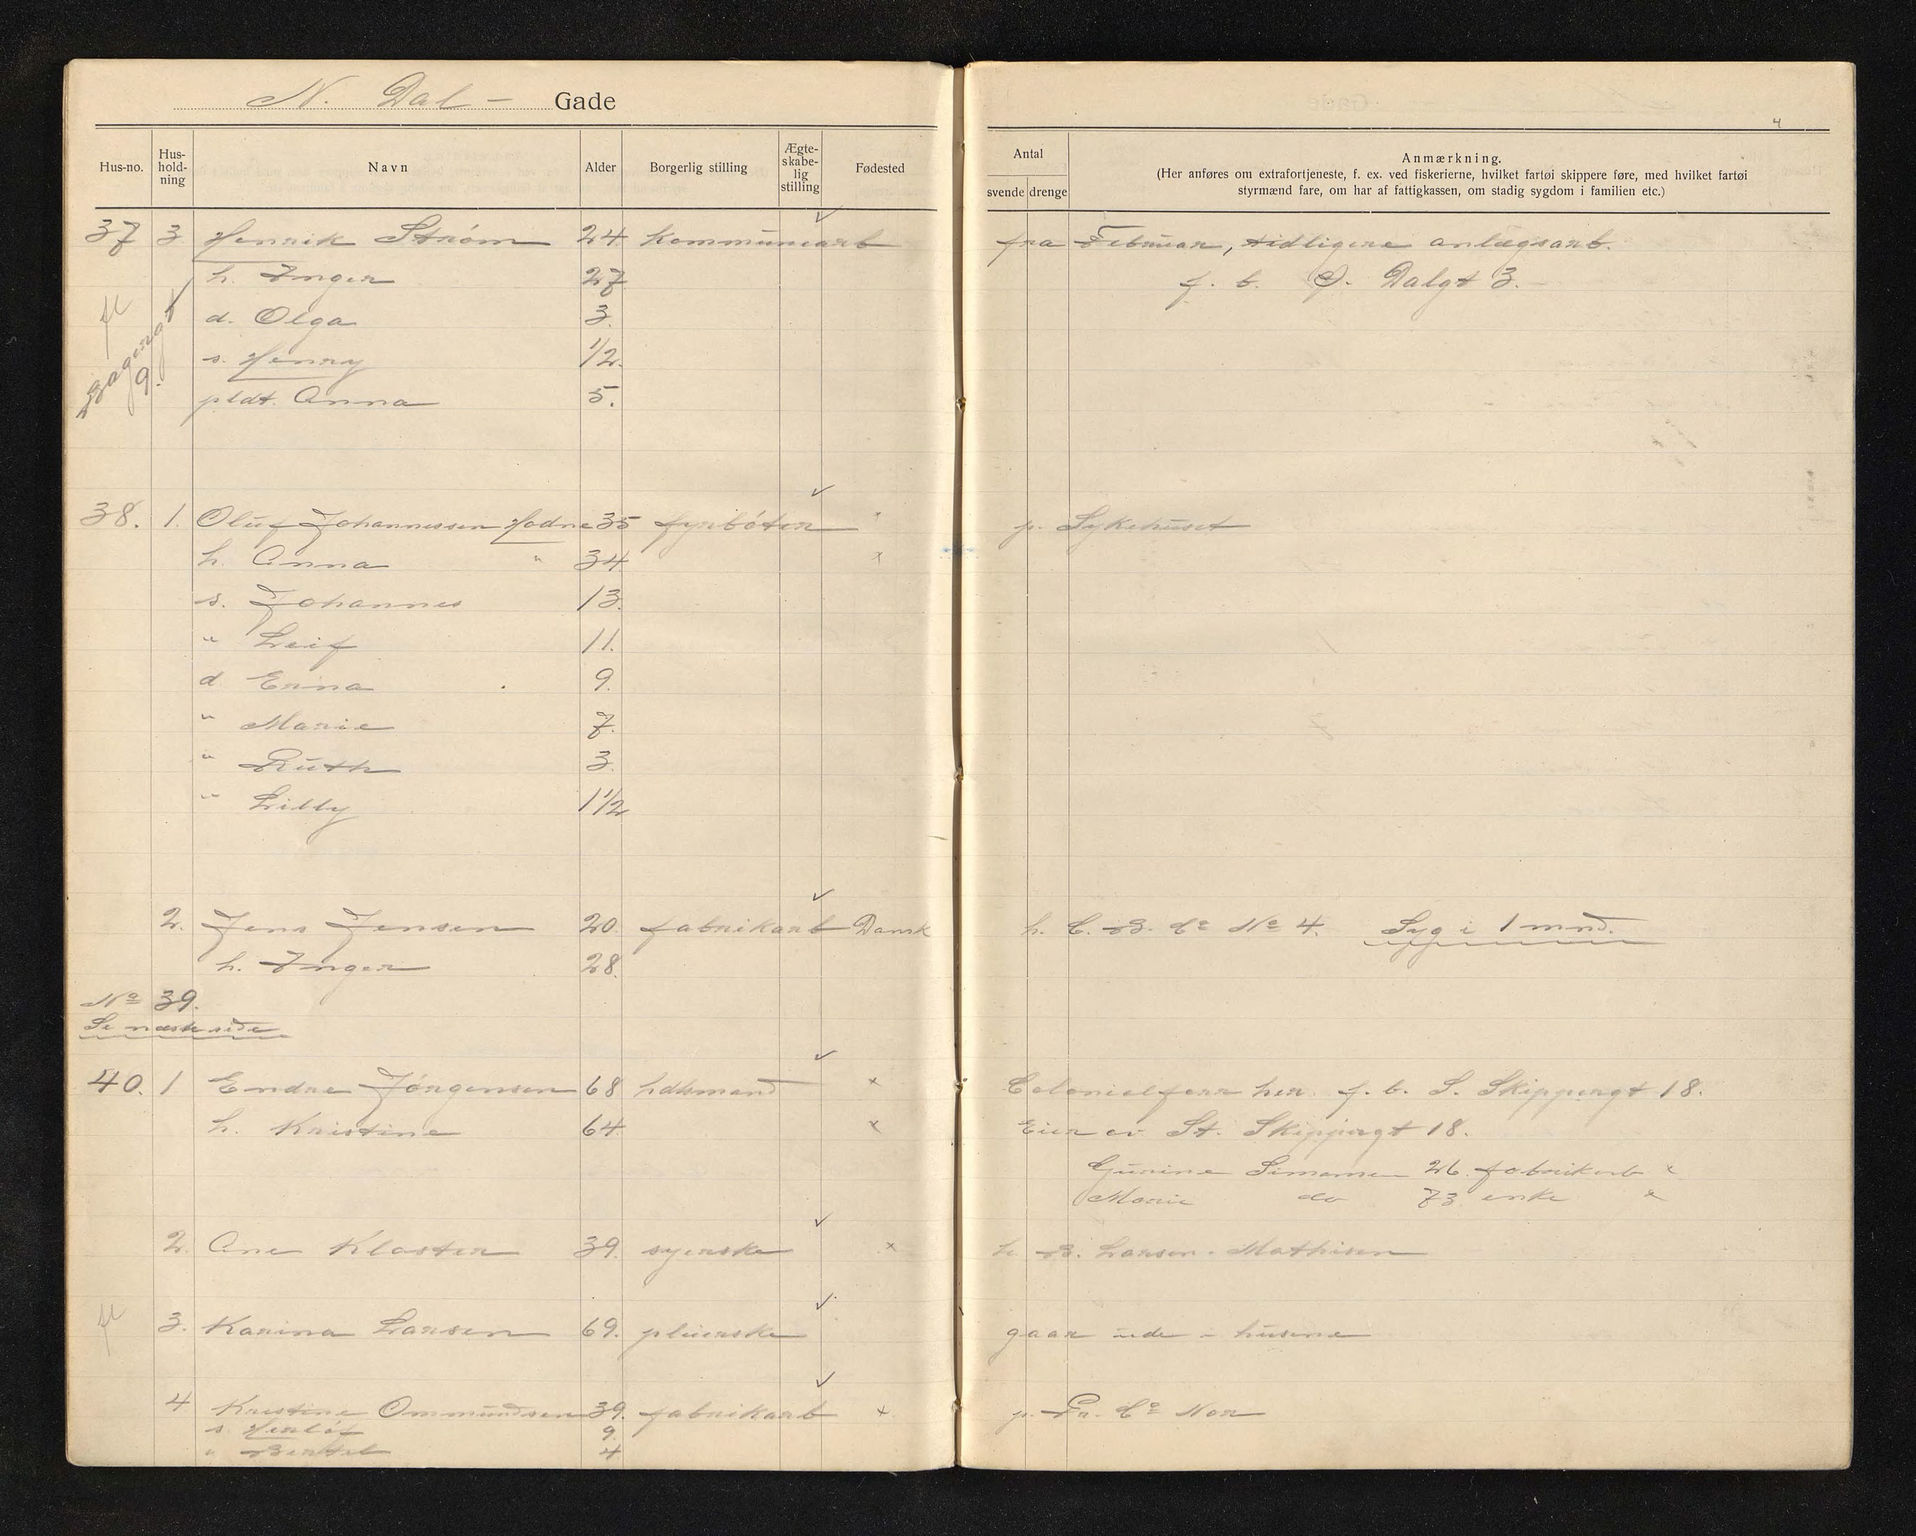 N. Dal - Gade
4
Hus-no. Hus-hold-ning Navn Alder Borgerlig stilling Ægte-skabe-lig stilling Fødested Antal svende drenge
Anmærkning.
(Her anføres om extrafortjeneste, f. ex. ved fiskerierne, hvilket fartøi skippere føre, med hvilket fartøi
styrmænd fare, om har af fattigkassen, om stadig sygdom i familien etc.)
37 3 Henrik Strøm 24. kommunearb fra Februar, tidligere anlægsarb.
h. Inger 27 f. b. Ø. Dalgt 3.
fl d. Olga 3.
Bagergt s. Henry 1/2.
9. pldt. Anna 5.
38. 1. Oluf Johannessen Hodne 35 fyrbøter " p. Sykehuset
h. Anna " 34 x
s. Johannes 13.
" Leif 11.
d. Erna 9.
" Marie 7.
" Ruth 3.
" Lilly 1 1/2
2. Jens Jensen 20. fabrikarb Dansk h. C. B. Co No 4. Syg i 1 mnd.
h. Inger 28.
No 39.
Se næste side
40. 1 Endre Jørgensen 68 hdlsmand x Colonialforr her. f. b. S. Skippergt 18.
h. Kristine 64. x Eier av St. Skippergt 18.
Gurine Simonsen 26. fabrikarb x
Marie do 73 enke x
2. Ane Kloster 39. syerske x h. B. Larsen. Mathisen
fl 3. Karina Larsen 69. pleierske gaar ude i husene
4 Kristine Ommundsen 39. fabrikarb x. p. Pr. Co Nor
s. Herlof 9.
" Bertel 4